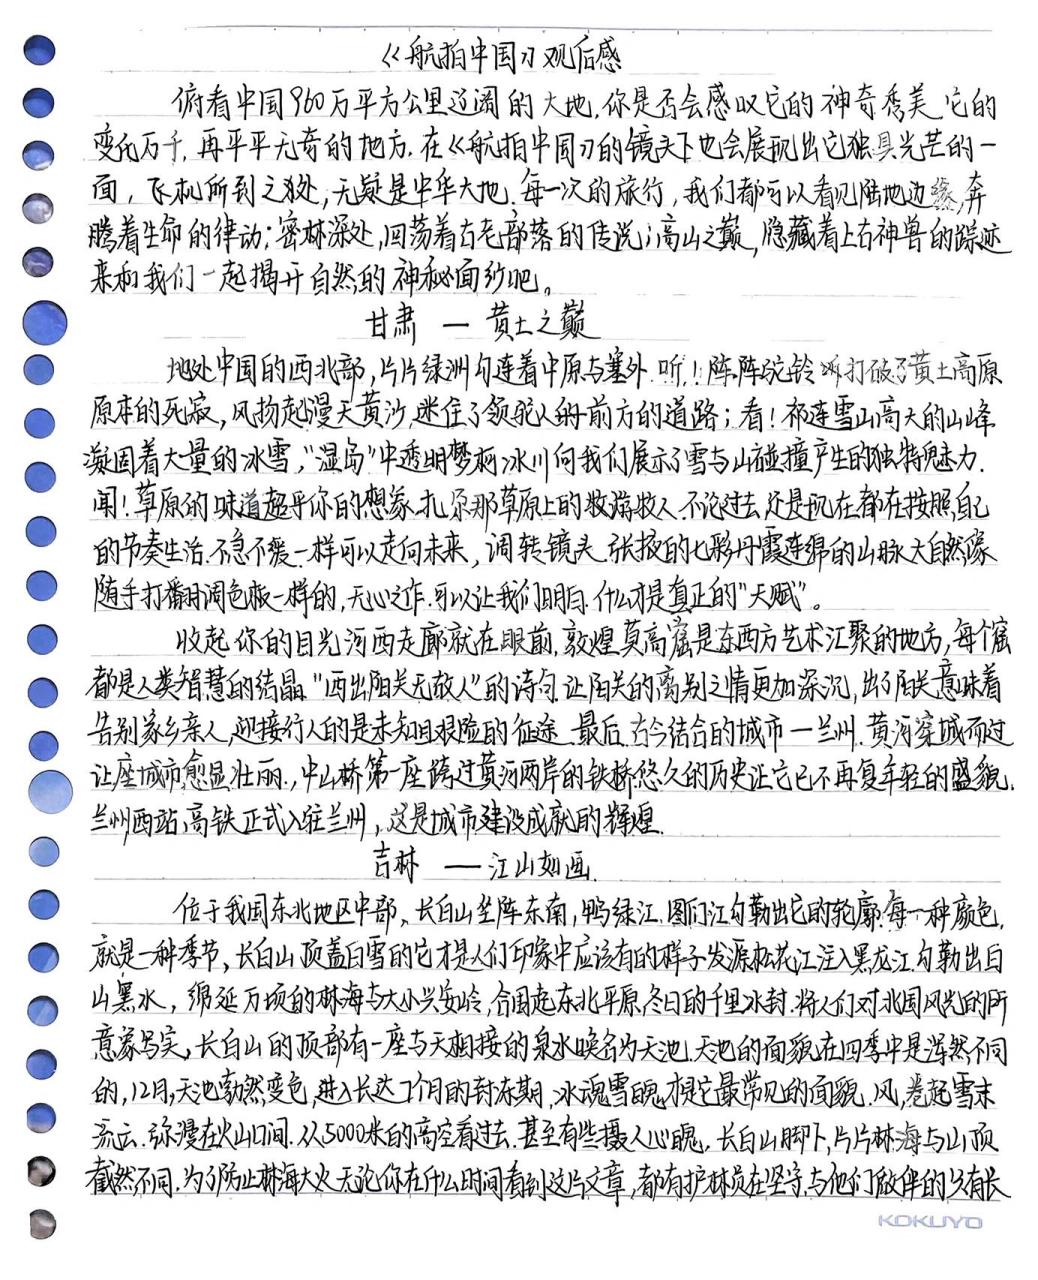 《航拍中国》观后感
俯看中国960万平方公里辽阔的大地,你是否会感叹它的神奇秀美,它的
变化万千,再平平无奇的地方.在《航拍中国》的镜头下也会展现出它独具光芒的一
面,飞机所到之处,无疑是中华大地.每一次的旅行,我们都可以看见陆地边缘,奔
腾着生命的律动;密林深处,回荡着古老部落的传说;高山之巅,隐藏着上古神兽的踪迹
来和我们一起揭开自然的神秘面纱吧。
甘肃 — 黄土之巅
地处中国的西北部,片片绿洲勾连着中原与塞外.听!阵阵驼铃打破了黄土高原
原本的死寂,风扬起漫天黄沙,迷住了领驼人前方的道路;看!祁连雪山高大的山峰
凝固着大量的冰雪,"湿岛"中透明梦柯冰川向我们展示了雪与山碰撞产生的独特魅力.
闻!草原的味道超乎你的想象.扎尕那草原上的牧人.不论过去还是现在都在按照自己
的节奏生活.不急不缓一样可以走向未来,调转镜头.张掖的七彩丹霞连绵的山脉大自然像
随手打翻调色板一样的,无心之作.可以让我们明白.什么才是真正的"天赋"。
收起你的目光河西走廊就在眼前.敦煌莫高窟是东西方艺术汇聚的地方,每个窟
都是人类智慧的结晶."西出阳关无故人"的诗句.让阳关的离别之情更加深沉,出了阳关意味着
告别家乡亲人,迎接行人的是未知且艰险的征途.最后.古今结合的城市一兰州.黄河穿城而过
让座城市愈显壮丽.,中山桥第一座跨过黄河两岸的铁桥悠久的历史让它已不再复年轻的盛貌.
兰州西站,高铁正式入驻兰州,这是城市建设成就的辉煌.
吉林 —— 江山如画.
位于我国东北地区中部、长白山坐阵东南,鸭绿江.图们江勾勒出它的轮廓.每一种颜色.
就是一种季节,长白山顶盖白雪的它才是人们印象中应该有的样子发源松花江注入黑龙江.勾勒出白
山黑水,绵延万顷的林海与大小兴安岭,合围起东北平原,冬日的千里冰封.将人们对北国风光的所
意象写实,长白山的顶部有一座与天相接的泉水唤名为天池.天池的面貌在四季中是浑然不同
的,12月,天池勃然变色,进入长达7个月的封冻期,冰魂雪魄才是它最常见的面貌.风,卷起雪末
流云.弥漫在火山口间.从5000米的高空看过去.甚至有些摄人心魄.长白山脚下,片片林海与山顶
截然不同.为了防止林海大火无论你在什么时间看到这片文章,都有护林员在坚守.与他们做伴的只有长
KOKUYO